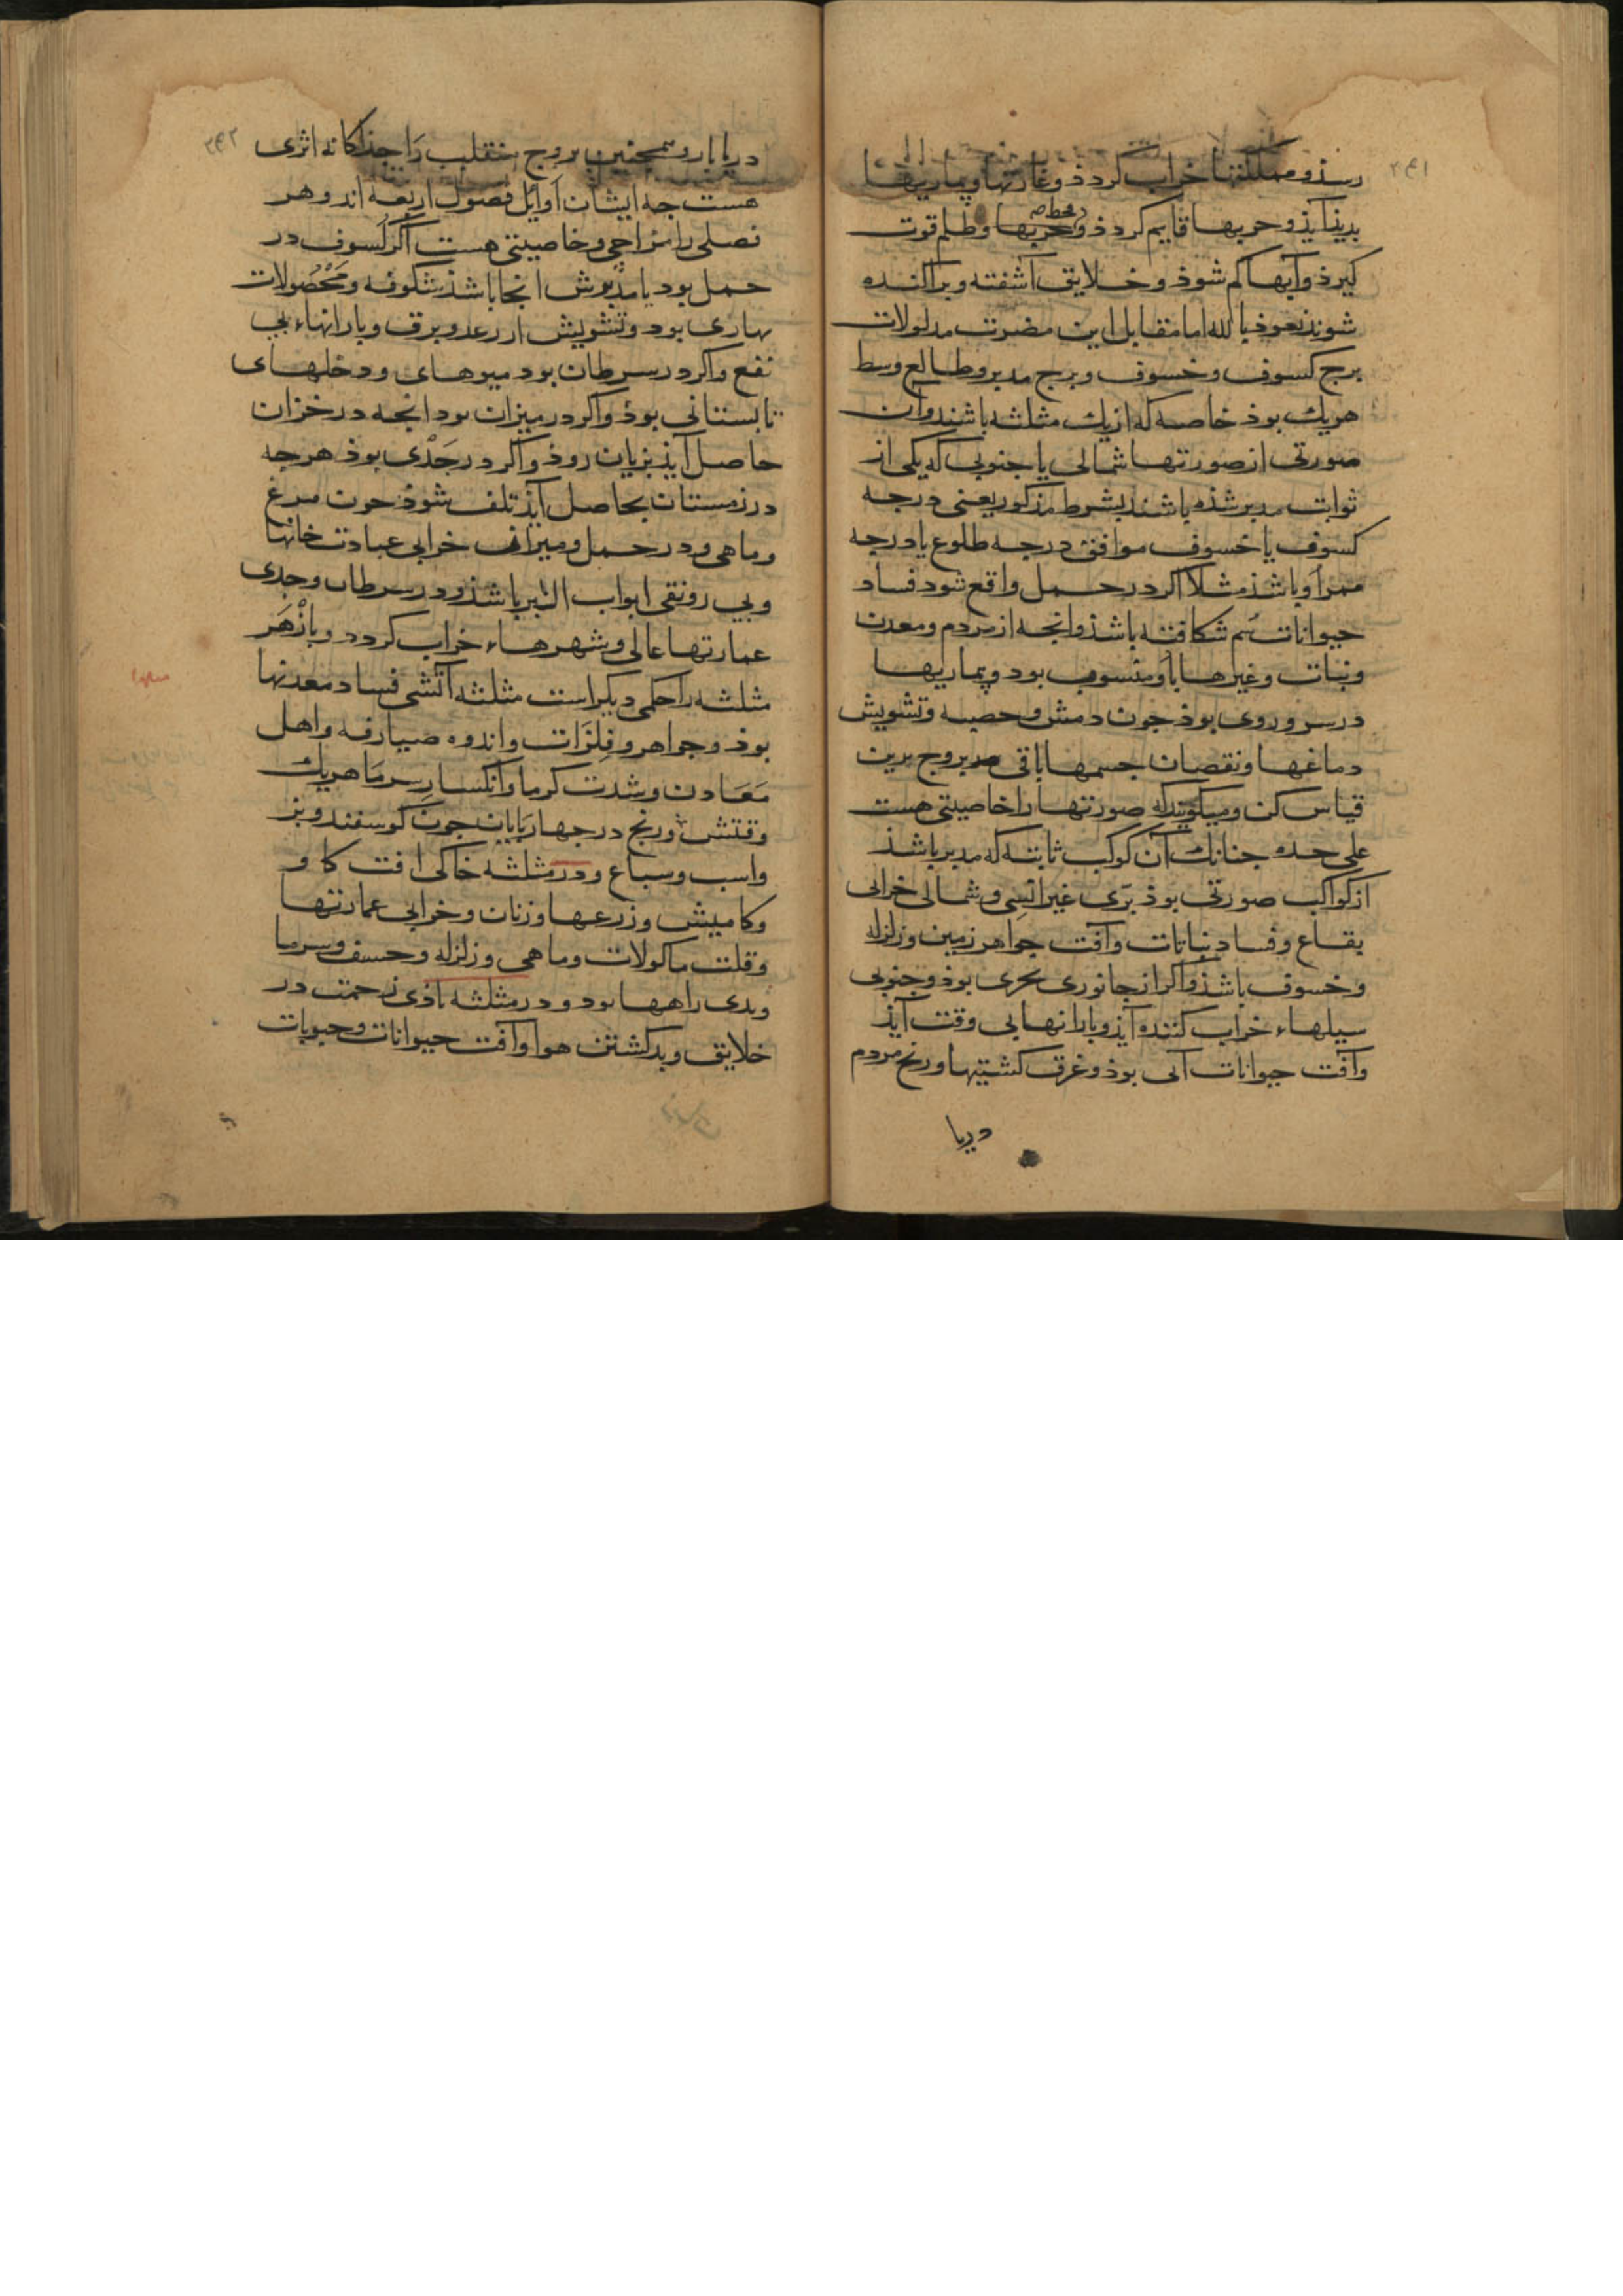 ۳۹۱
رسذ و مملکتها خراب کردذ و غارتها و بیماریها
بدیذ آیذ و حربها قایم کردذ و قحط و حربها و ظلم قوت
کیرذ و آبها کم شوذ و خلایق آشفته و پراکنده
شوند نعوذ بالله اما مقابل این مضرت مدلولات
برج کسوف و خسوف و برج مدبر و طالع وسط
هریک بوذ خاصه که از یک مثلثه باشند و آن
صورتی از صورتها شمالی یا جنوبی که یکی از
ثوابت مدبر شذه باشند بشرط مذکور یعنی درجه
کسوف یا خسوف موافق درجه طلوع یا درجه
ممر او باشذ مثلا اکر در حمل واقع شود فساد
حیوانات سم شکافته باشذ و انجه از مردم و معدن
و نبات و غیرها باو منسوب بود و بیماریها
در سر و روی بوذ جون دمش و حصبه و تشویش
دماغها و نقصان جسمها باقی بروج برین
قیاس کن و میکویند که صورتها را خاصیتی هست
علی حده جنانک آن کوکب ثابته که مدبر باشذ
از کواکب صورتی بوذ بری غیر انسی و شمالی خرابی
بقاع و فساد نباتات و آفت جواهر زمین و زلزله
و خسوف باشذ و اکر از جانوری بحری بوذ و جنوبی
سیلهاء خراب کننده آیذ و بارانها بی وقت آیذ
و آفت حیوانات آبی بوذ و غرق کشتیها و رنج مردم
دریا
۳۹۲
دریابار و همجنین بروج منقلب را جذاکانه اثری
هست جه ایشان اوایل فصول اربعه اند و هر
فصلی را مزاجی و خاصیتی هست اکر کسوف در
حمل بود یا مدبرش انجا باشذ شکوفه و محصولات
بهاری بود و تشویش از رعد و برق و بارانهاء بی
نفع و اکر در سرطان بود میوهای و دخلهای
تابستانی بوذ و اکر در میزان بود انجه در خزان
حاصل آیذ بزیان روذ و اکر در جدی بوذ هرجه
در زمستان بحاصل آیذ تلف شوذ جون مرغ
و ماهی و در حمل و میزان خرابی عبادت خانها
و بی رونقی ابواب البر باشذ و در سرطان و جدی
عمارتها عالی و شهرهاء خراب کردد و باز هر
مثلثه را حکمی دیکر است مثلثه آتشی فساد معدنها
بوذ و جواهر و فلزات و اندوه صیارفه و اهل
معادن و شدت کرما و انکسار سرما هریک
وقتش و رنج در جهارپایان جون کوسفند و بز
واسب و سباع و در مثلثه خاکی افت کاو
و کامیش و زرعها و زنان و خرابی عمارتها
و قلت ماکولات و ماهی و زلزله و خسف و سرما
و بدی راهها بود و در مثلثه باذی زحمت در
خلایق و بد کشتن هوا و آفت حیوانات و حبوبات